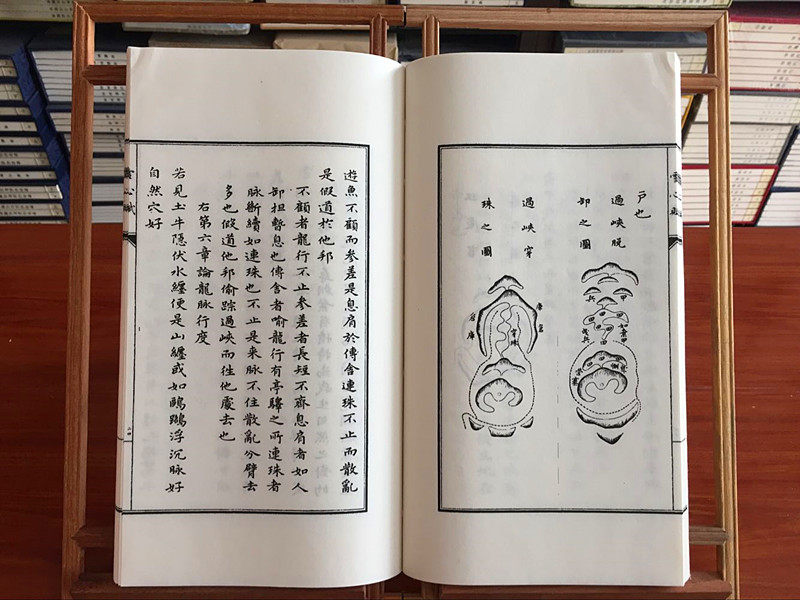 雪心賦
戶也
過峽脫
卸之圖
過峽穿
珠之圖
穿珠
遊魚不顧而參差是息肩於傳舍連珠不止而散亂
是假道於他邦
不顧者龍行不止參差者長短不齊息肩者如人
卸担暫息也傳舍者喻龍行有亭驛之所連珠者
脉斷續如連珠也不止是来脉不住散亂分臂去
多也假道他邦偷踪過峽而徃他處去也
右第六章論龍脉行度
若見土牛隱伏水纏便是山纏或如鷗鷺浮沉脉好
自然穴好
雪心賦